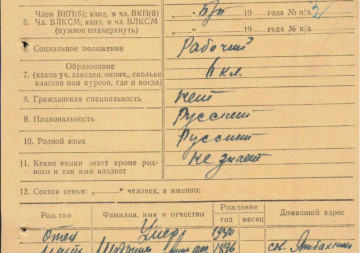 Член ВКП(б); канд. в чл. ВКП(б) 19 года № п/д
5. Чл. ВЛКСМ; канд. в чл. ВЛКСМ
(нужное подчеркнуть) 19 года № к/д
6. Социальное положение Рабочий
Образование
7. (какое уч. заведен. оконч., сколько 6 кл.
классов или курсов, где и когда)
8. Гражданская специальность нет
9. Национальность Русский
10. Родной язык Русский
11. Какие языки знает кроме род-
ного и как ими владеет не знает
12. Состав семьи: „———“ человек, а именно:
Родство Фамилия, имя и отчество Рождение Домашний адрес
год месяц
Отец Умер 1940
Мать 1896